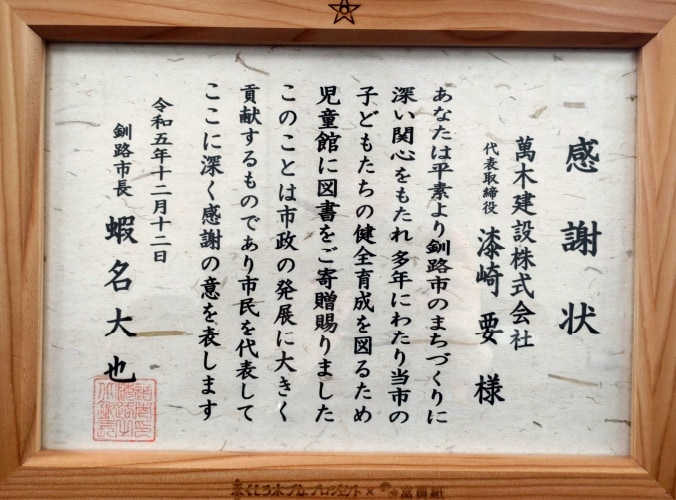 感謝状
萬木建設株式会社
代表取締役 漆崎要様
あなたは平素より釧路市のまちづくりに
深い関心をもたれ多年にわたり当市の
子どもたちの健全育成を図るため
児童館に図書をご寄贈賜りました
このことは市政の発展に大きく
貢献するものであり市民を代表して
ここに深く感謝の意を表します
令和五年十二月十二日
釧路市長 蝦名大也